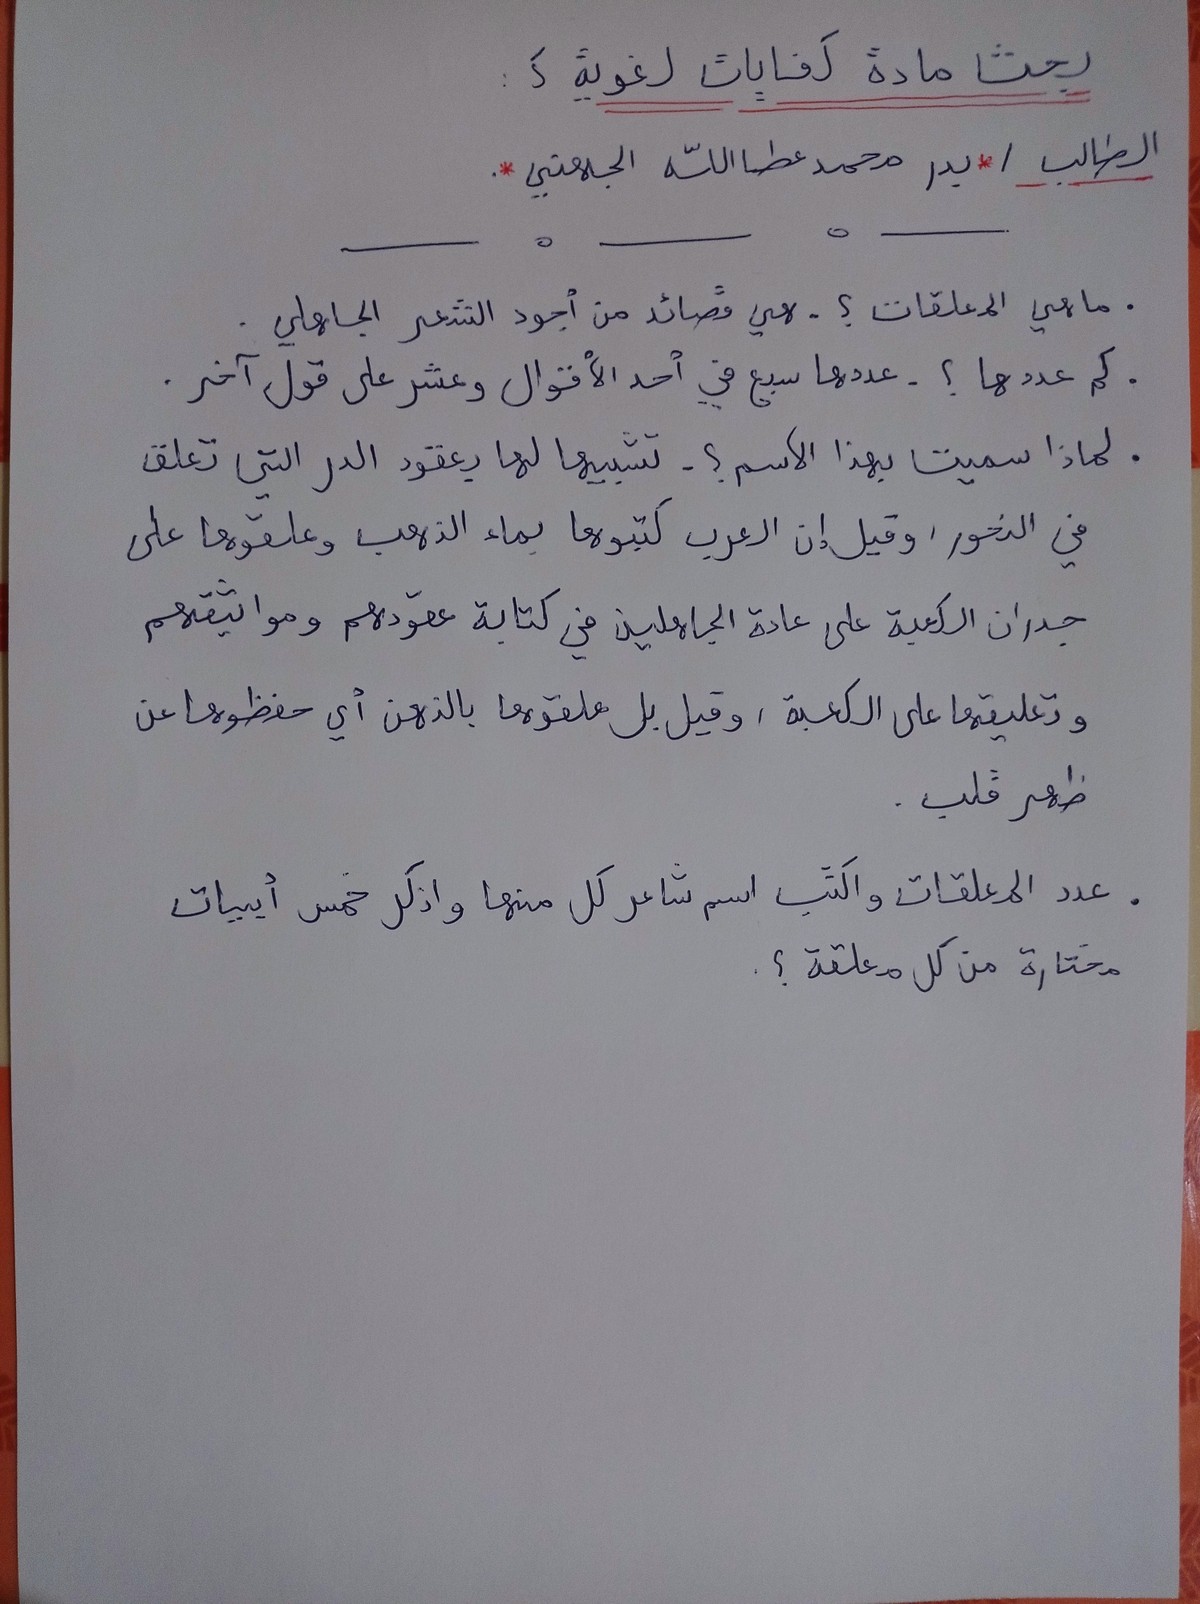 بحث مادة كفايات لغوية ٤ :
الطالب / *بدر محمد عطاالله الجهني*.
. ما هي المعلقات ؟ - هي قصائد من أجود الشعر الجاهلي .
. كم عددها ؟ - عددها سبع في أحد الأقوال وعشر على قول آخر .
. لماذا سميت بهذا الاسم ؟ - تشبيها لها بعقود الدر التي تعلق
في النحور ، وقيل إن العرب كتبوها بماء الذهب وعلقوها على
جدران الكعبة على عادة الجاهلين في كتابة عقودهم ومواثيقهم
وتعليقها على الكعبة ، وقيل بل علقوها بالذهن أي حفظوها عن
ظهر قلب .
. عدد المعلقات واكتب اسم شاعر كل منها واذكر خمس أبيات
مختارة من كل معلقة ؟ .